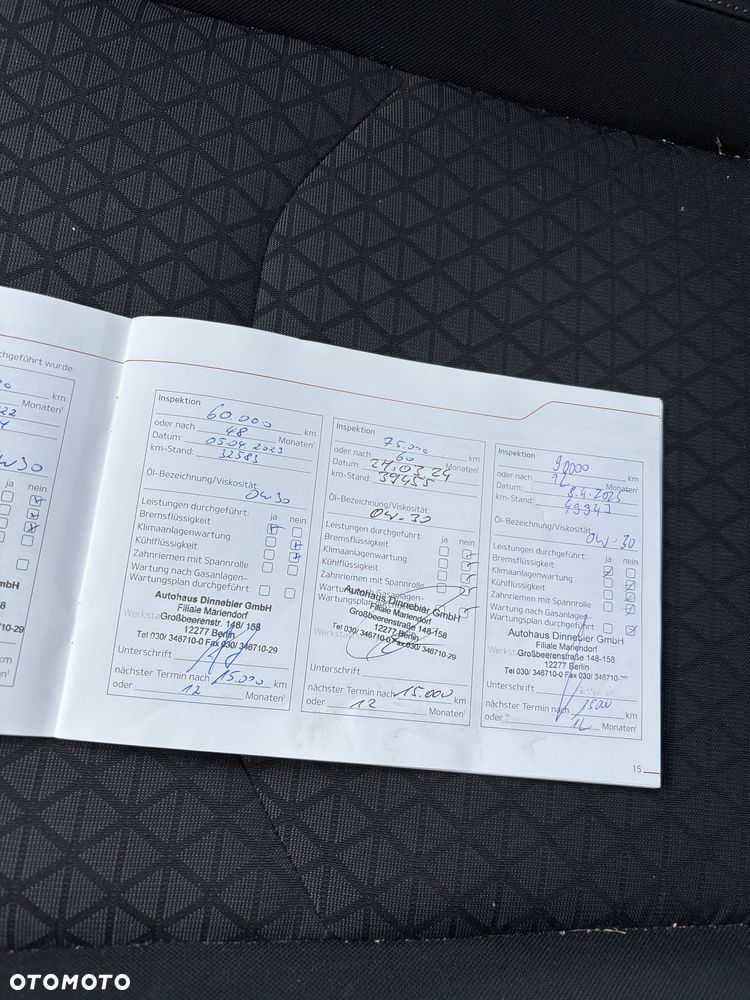 chgeführt wurde.
km
Monaten¹
22
0W30
ja nein
mbH
8
710-29
km
Monaten¹
Inspektion
60.000 km
oder nach 48 Monaten¹
Datum: 05.04.2023
km-Stand: 32583
Öl-Bezeichnung/Viskosität:
0W30
Leistungen durchgeführt: ja nein
Bremsflüssigkeit
Klimaanlagenwartung
Kühlflüssigkeit
Zahnriemen mit Spannrolle
Wartung nach Gasanlagen-
Wartungsplan durchgeführt
Autohaus Dinnebier GmbH
Filiale Mariendorf
Großbeerenstr. 148/ 158
12277 Berlin
Tel 030/ 346710-0 Fax 030/ 346710-29
Unterschrift
nächster Termin nach 15.000 km
oder 12 Monaten¹
Inspektion
75.000 km
oder nach 60 Monaten¹
Datum: 27.03.24
km-Stand: 39455
Öl-Bezeichnung/Viskosität:
0W-30
Leistungen durchgeführt: ja nein
Bremsflüssigkeit
Klimaanlagenwartung
Kühlflüssigkeit
Zahnriemen mit Spannrolle
Wartung nach Gasanlagen-
Wartungsplan
Autohaus Dinnebier GmbH
Filiale Mariendorf
Großbeerenstraße 148-158
12277 Berlin
Tel 030/ 346710-0 Fax 030/ 346710-29
Unterschrift
nächster Termin nach 15.000 km
oder 12 Monaten¹
Inspektion
90000 km
oder nach 72 Monaten¹
Datum: 8.4.2025
km-Stand: 49947
Öl-Bezeichnung/Viskosität:
0W-30
Leistungen durchgeführt: ja nein
Bremsflüssigkeit
Klimaanlagenwartung
Kühlflüssigkeit
Zahnriemen mit Spannrolle
Wartung nach Gasanlagen-
Wartungsplan durchgeführt
Autohaus Dinnebier GmbH
Filiale Mariendorf
Großbeerenstraße 148-158
12277 Berlin
Tel 030/ 346710-0 Fax 030/ 346710-29
Unterschrift
nächster Termin nach 15000 km
oder 12 Monaten¹
15
OTOMOTO